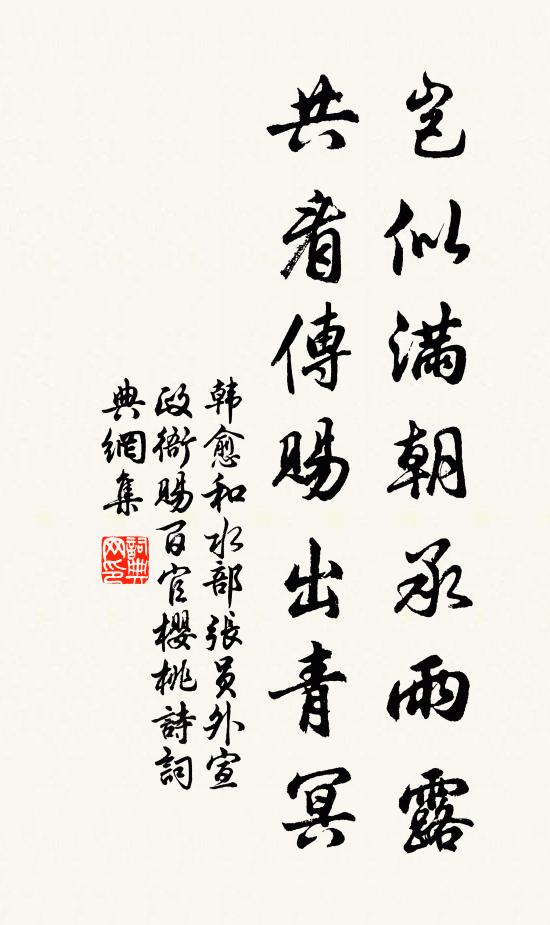 岂似满朝承雨露
共看傳賜出青冥
韩愈和水部張员外宣
政衙賜百官櫻桃詩詞
典網集
詞典网印